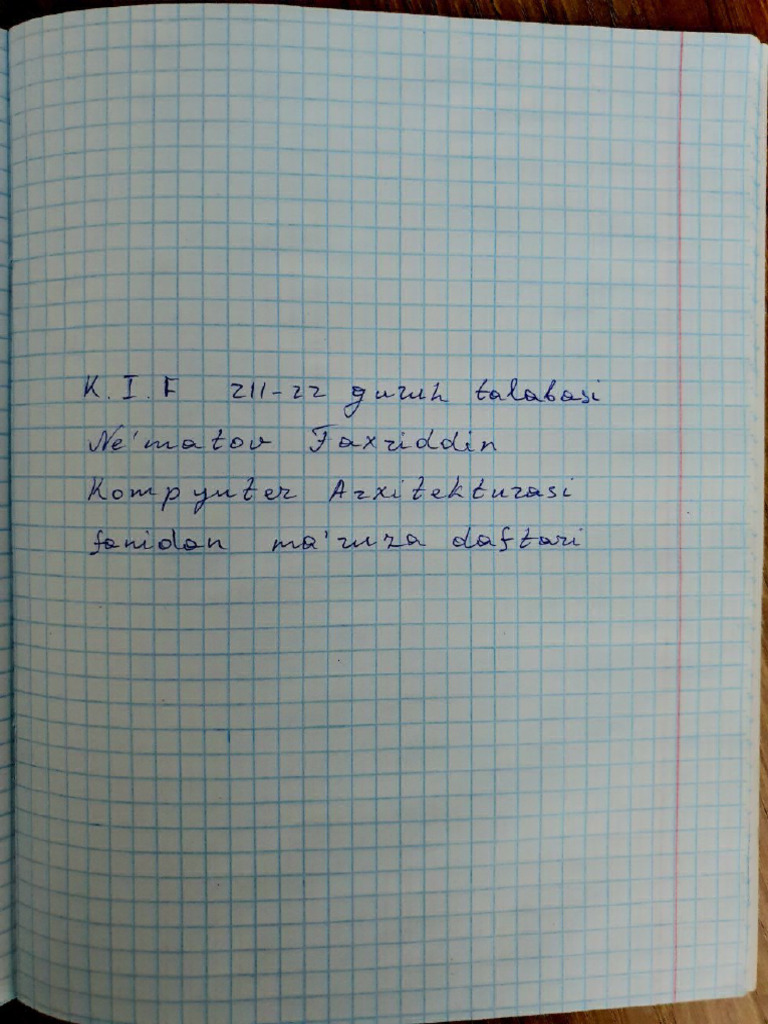 K.I.F 211-22 guruh talabasi
Ne'matov Faxriddin
Kompyuter Arxitekturasi
fanidan ma'ruza daftari